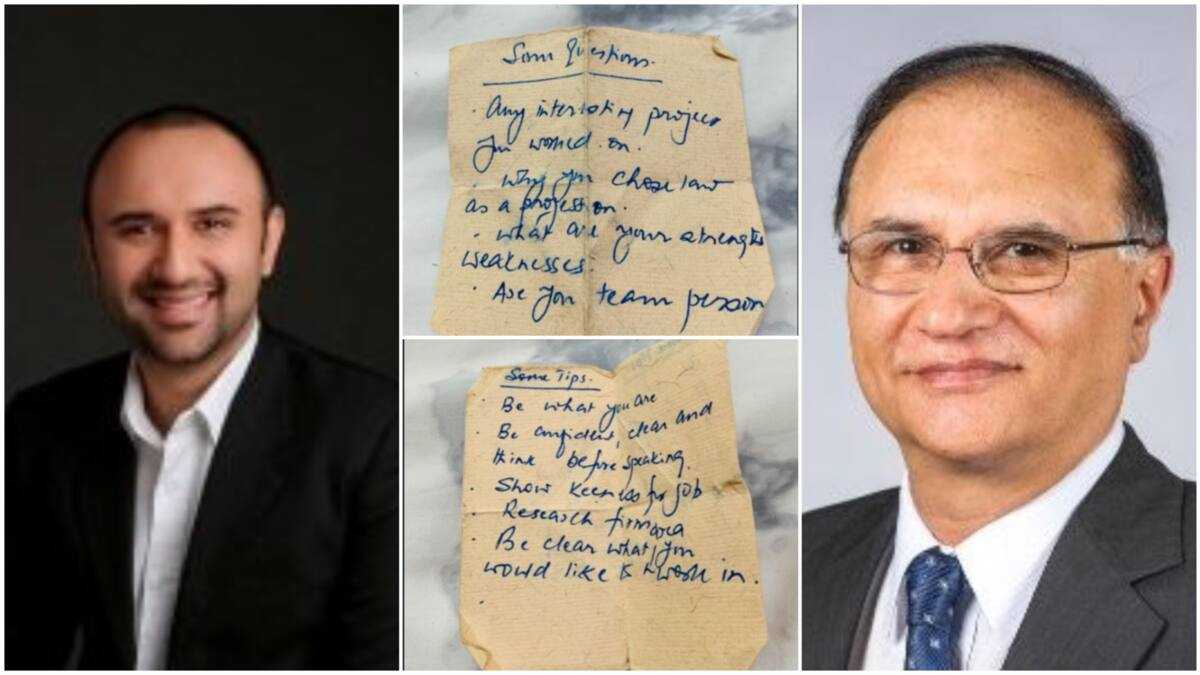 Some Questions.
· Any interesting project
you worked on.
· Why you chose law
as a profession.
· What are your strengths
weaknesses
· Are you team person
Some Tips.
· Be what you are
· Be confident, clear and
think before speaking.
· Show keenness for job
· Research firm area
· Be clear what you
would like to work in.